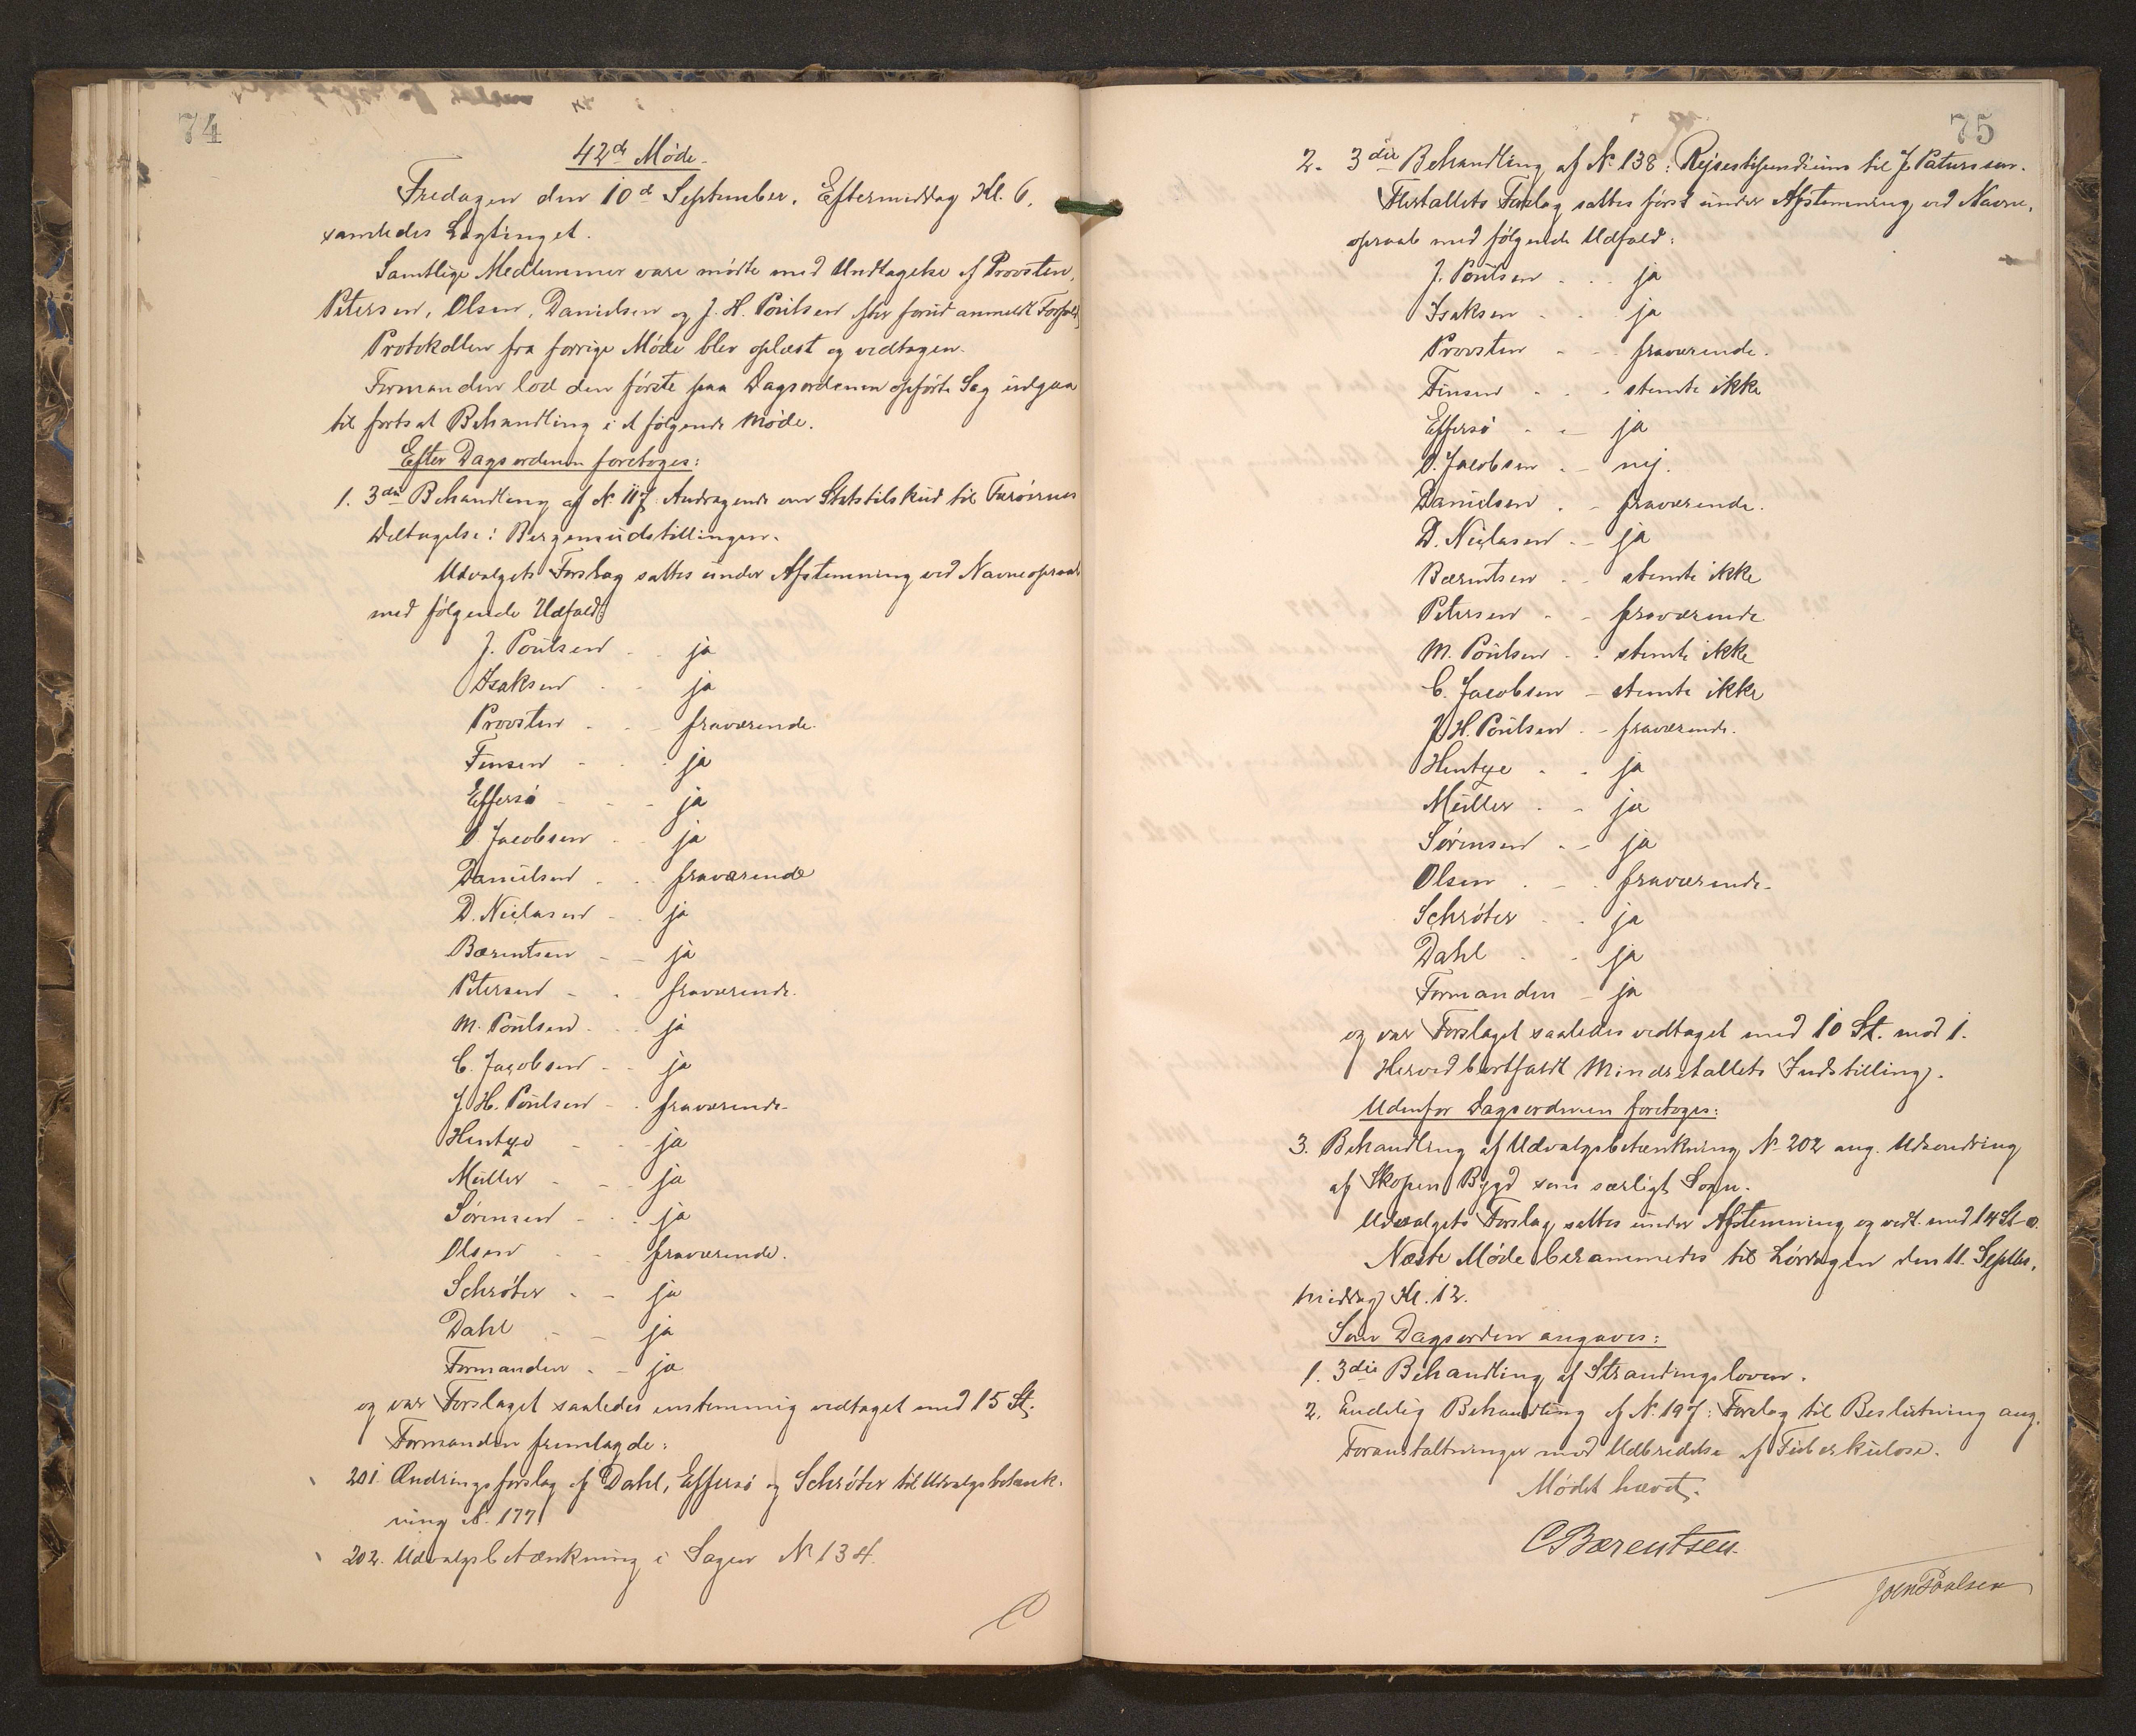 74
42de Møde.
Fredagen den 10de September, Eftermiddag Kl. 6,
samledes Lagtinget.
Samtlige Medlemmer vare mødte med Undtagelse af Provsten,
Petersen, Olsen, Danielsen og J. H. Poulsen efter forud anmeldt Forfald.
Protokollen fra forrige Møde blev oplæst og vedtagen.
Formanden lod den første paa Dagsordenen opførte Sag udgaa
til fortsat Behandling i et følgende Møde.
Efter Dagsordenen foretoges:
1. 3die Behandling af No 117: Andragende om Statstilskud til Færøernes
Deltagelse i Bergensudstillingen.
Udvalgets Forslag sattes under Afstemning ved Navneopraab
med følgende Udfald:
J. Poulsen - - ja
Isaksen - - ja
Provsten - - fraværende.
Finsen - - - ja
Effersø - - - ja
O. Jacobsen - - ja
Danielsen - - fraværende
D. Niclasen - - ja
Bærentsen - - ja
Petersen - - fraværende.
M. Poulsen - - ja
C. Jacobsen - - ja
J. H. Poulsen - - fraværende.
Hentze - - - ja
Müller - - ja
Sørensen - - - ja
Olsen - - fraværende.
Schrøter - - ja
Dahl - - ja
Formanden - - ja
og var Forslaget saaledes enstemmig vedtaget med 15 St.
Formanden fremlagde:
201. Ændringsforslag af Dahl, Effersø og Schrøter til Udvalgsbetænk-
ning No 177.
202. Udvalgsbetænkning i Sagen No 134.
75
2. 3die Behandling af No 138: Rejsestipendium til J. Patursson.
Flertallets Forslag sattes først under Afstemning ved Navne-
opraab med følgende Udfald:
J. Poulsen - - - ja
Isaksen - - ja
Provsten - - fraværende.
Finsen - - - stemte ikke
Effersø - - ja
O. Jacobsen - - nej.
Danielsen - - fraværende.
D. Niclasen - - ja
Bærentsen - - stemte ikke
Petersen - - fraværende
M. Poulsen - - stemte ikke
C. Jacobsen - stemte ikke
J. H. Poulsen - - fraværende.
Hentze - - ja
Müller - - ja
Sørensen - - ja
Olsen - - - fraværende.
Schrøter - - ja
Dahl - - ja
Formanden - ja
og var Forslaget saaledes vedtaget med 10 St. mod 1.
Herved bortfaldt Mindretallets Indstilling.
Udenfor Dagsordenen foretoges:
3. Behandling af Udvalgsbetænkning No 202 ang. Udsondring
af Skopen Bygd som særligt Sogn.
Udvalgets Forslag sattes under Afstemning og vedt. med 14 St - 0.
Næste Møde berammedes til Lørdagen den 11. Septbr.
Middag Kl. 12.
Som Dagsorden angaves:
1. 3die Behandling af Strandingsloven.
2. Endelig Behandling af No 197: Forslag til Beslutning ang.
Foranstaltninger mod Udbredelse af Tuberkulose.
Mødet hævet.
C Bærentsen.
Joen Poulsen